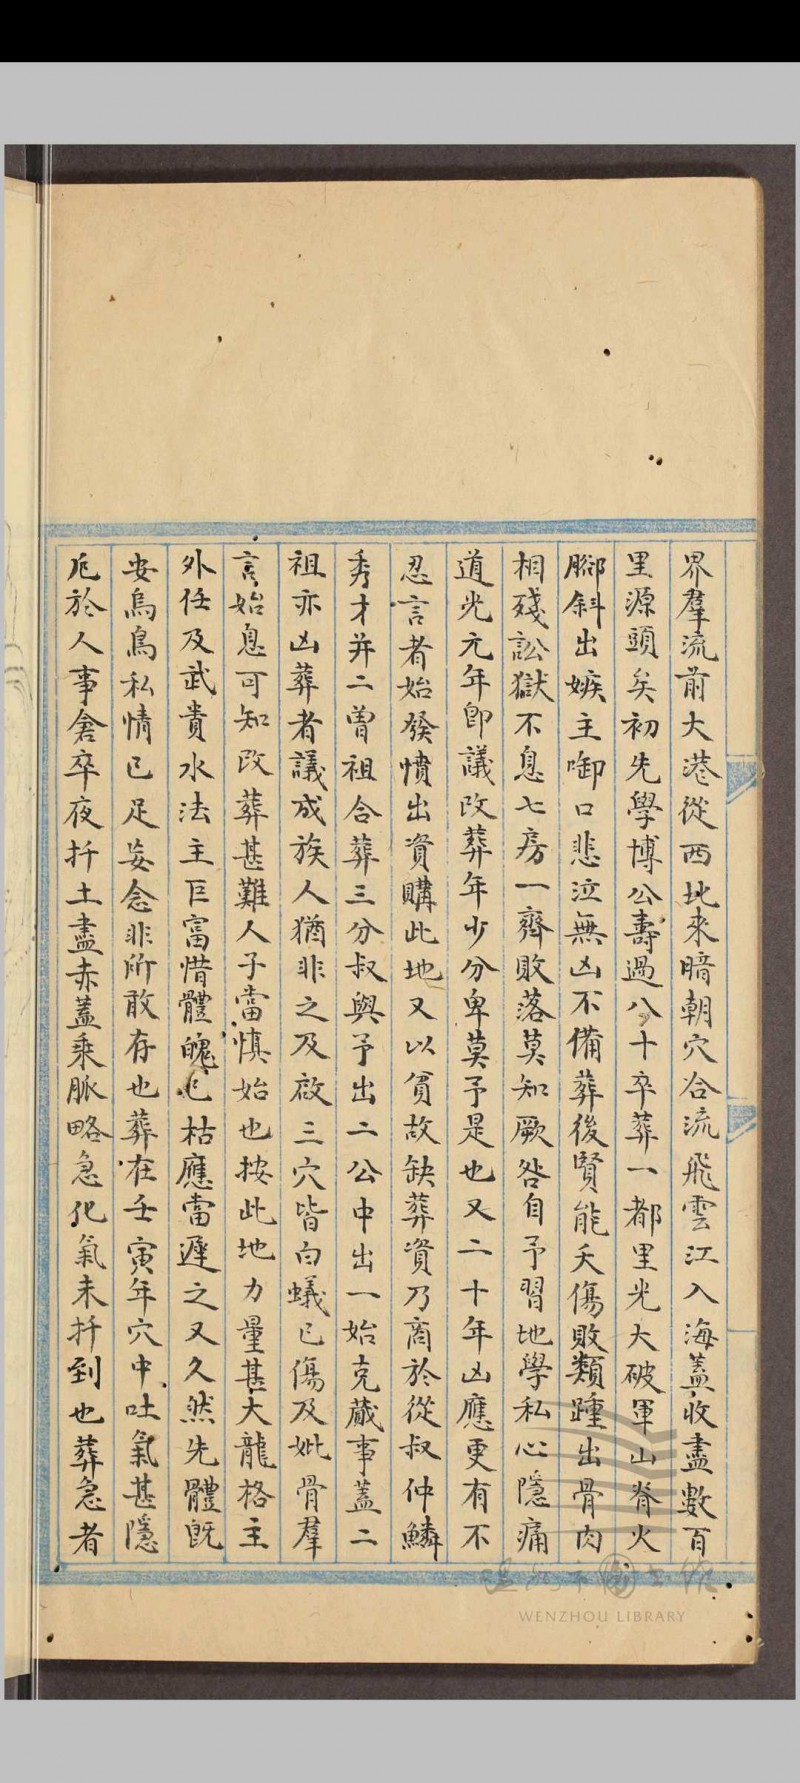 界羣流前大港從西北來暗朝穴合流飛雲江入海蓋收盡數百
里源頭矣初先學博公壽過八十卒葬一都里光大破軍山脊火
腳斜出嫉主啣口悲泣無凶不備葬後賢能夭傷敗類踵出骨肉
相殘訟獄不息七房一齊敗落莫知厥咎自予習地學私心隱痛
道光元年即議改葬年少分卑莫予是也又二十年凶應更有不
忍言者始發憤出資購此地又以貧故缺葬資乃商於從叔仲鱗
秀才并二曾祖合葬三分叔與予出二公中出一始克蕆事蓋二
祖亦凶葬者議成族人猶非之及啟三穴皆白蟻已傷及妣骨羣
言始息可知改葬甚難人子當慎始也按此地力量甚大龍格主
外任及武貴水法主巨富惜體魄已枯應當遲之又久然先體既
安烏鳥私情已足妄念非所敢存也葬在壬寅年穴中吐氣甚隱
厄於人事倉卒夜扦土盡赤蓋乘脈略急化氣未扦到也葬急者
WENZHOU LIBRARY